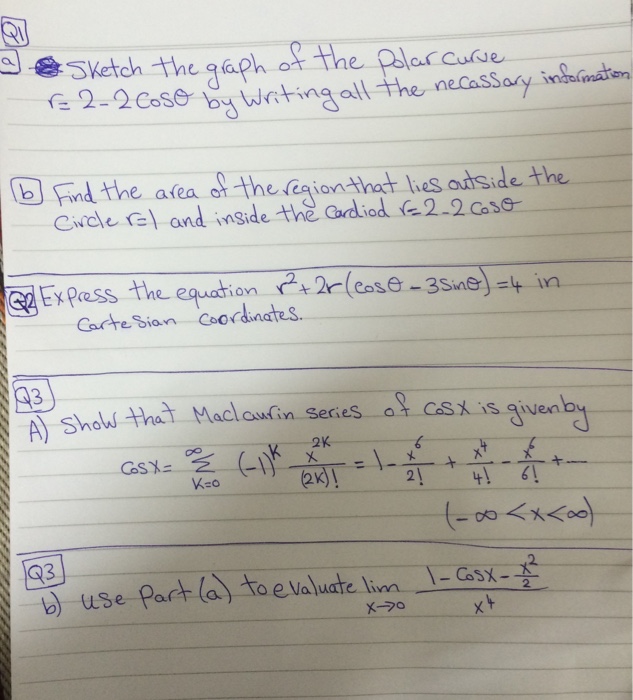 Q1
a Sketch the graph of the Polar curve
r = 2-2cosθ by Writing all the necassary information
b Find the area of the region that lies outside the
Circle r=1 and inside the Cardiod r=2-2cosθ
Q2 Express the equation r²+2r(cosθ-3sinθ)=4 in
Cartesian coordinates.
Q3
A) Show that Maclaurin series of cosx is given by
Cosx = ∞∑K=0 (-1)^K x^2K/(2K)! = 1 - x^6/2! + x^4/4! - x^6/6! + ---
(-∞<x<∞)
Q3
b) use Part (a) to evaluate lim x→0 (1-Cosx-x²/2)/x^4